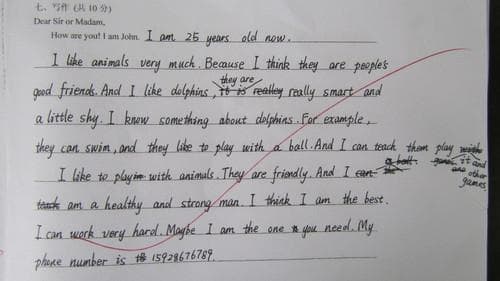 七、写作 (共 10 分)
Dear Sir or Madam,
How are you! I am John. I am 25 years old now.
I like animals very much. Because I think they are people's
they are
good friends. And I like dolphins, it is realley really smart and
a little shy. I know something about dolphins. For example,
they can swim, and they like to play with a ball. And I can teach them play
a ball. games. it and
other
games
I like to playin with animals. They are friendly. And I can the
teach am a healthy and strong man. I think I am the best.
I can work very hard. Maybe I am the one you need. My
phone number is 15928676789.